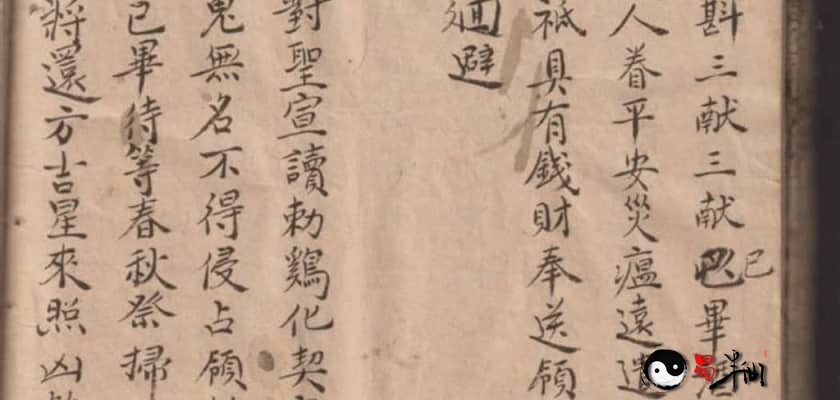 斟三献三献已畢
人眷平安災瘟遠
祗具有錢財奉送領
回避
對聖宣讀勅鷄化契
鬼無名不得侵占領
已畢待等春秋祭掃
將還方吉星來照凶
已
易半仙